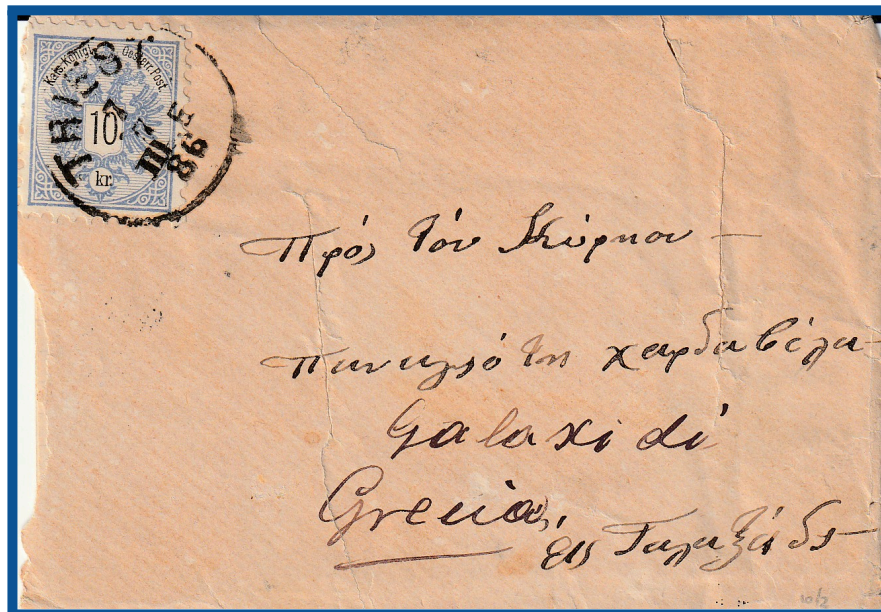 Kais. Königl. Oesterr. Post.
10
kr.
7
III
86
E
Πρός τόν Κύρηον
παναγιότη χαρδαβέλα
Galaxi di
Grecia,
εις Γαλαξίδι
10/2